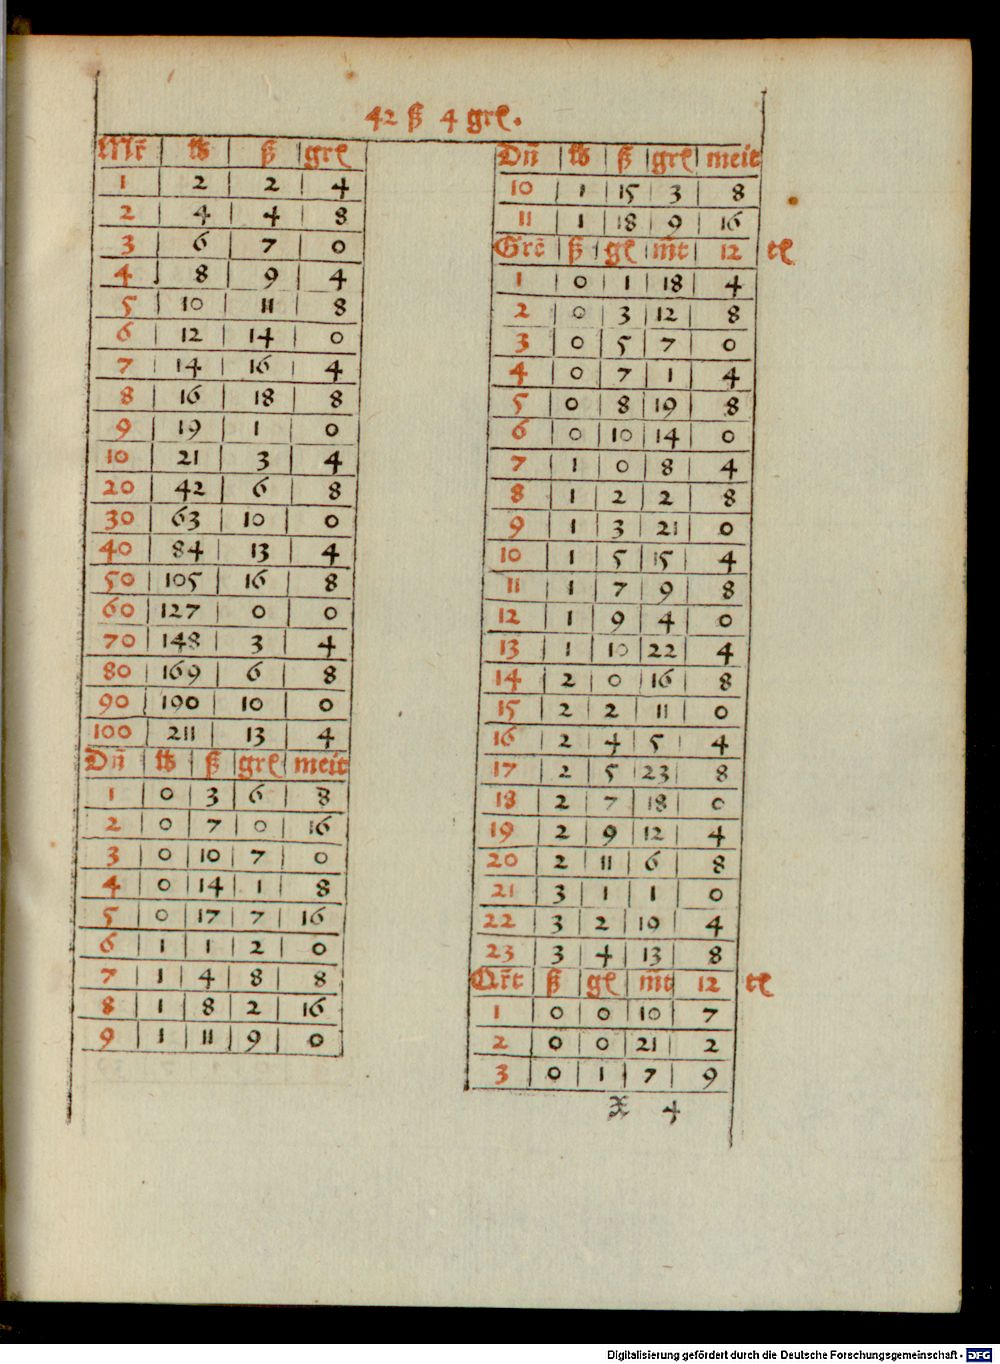 42 ß 4 grl.
Mr̄ | tb | ß | grl
1 | 2 | 2 | 4
2 | 4 | 4 | 8
3 | 6 | 7 | 0
4 | 8 | 9 | 4
5 | 10 | 11 | 8
6 | 12 | 14 | 0
7 | 14 | 16 | 4
8 | 16 | 18 | 8
9 | 19 | 1 | 0
10 | 21 | 3 | 4
20 | 42 | 6 | 8
30 | 63 | 10 | 0
40 | 84 | 13 | 4
50 | 105 | 16 | 8
60 | 127 | 0 | 0
70 | 148 | 3 | 4
80 | 169 | 6 | 8
90 | 190 | 10 | 0
100 | 211 | 13 | 4
Dñ | tb | ß | grl | meit
1 | 0 | 3 | 6 | 8
2 | 0 | 7 | 0 | 16
3 | 0 | 10 | 7 | 0
4 | 0 | 14 | 1 | 8
5 | 0 | 17 | 7 | 16
6 | 1 | 1 | 2 | 0
7 | 1 | 4 | 8 | 8
8 | 1 | 8 | 2 | 16
9 | 1 | 11 | 9 | 0
Dñ | tb | ß | grl | meit
10 | 1 | 15 | 3 | 8
11 | 1 | 18 | 9 | 16
Grc̄ | ß | gl | m̄t | 12 | tl
1 | 0 | 1 | 18 | 4
2 | 0 | 3 | 12 | 8
3 | 0 | 5 | 7 | 0
4 | 0 | 7 | 1 | 4
5 | 0 | 8 | 19 | 8
6 | 0 | 10 | 14 | 0
7 | 1 | 0 | 8 | 4
8 | 1 | 2 | 2 | 8
9 | 1 | 3 | 21 | 0
10 | 1 | 5 | 15 | 4
11 | 1 | 7 | 9 | 8
12 | 1 | 9 | 4 | 0
13 | 1 | 10 | 22 | 4
14 | 2 | 0 | 16 | 8
15 | 2 | 2 | 11 | 0
16 | 2 | 4 | 5 | 4
17 | 2 | 5 | 23 | 8
18 | 2 | 7 | 18 | 0
19 | 2 | 9 | 12 | 4
20 | 2 | 11 | 6 | 8
21 | 3 | 1 | 1 | 0
22 | 3 | 2 | 19 | 4
23 | 3 | 4 | 13 | 8
Qr̄t | ß | gl | m̄t | 12 | tl
1 | 0 | 0 | 10 | 7
2 | 0 | 0 | 21 | 2
3 | 0 | 1 | 7 | 9
x 4
Digitalisierung gefördert durch die Deutsche Forschungsgemeinschaft - DFG